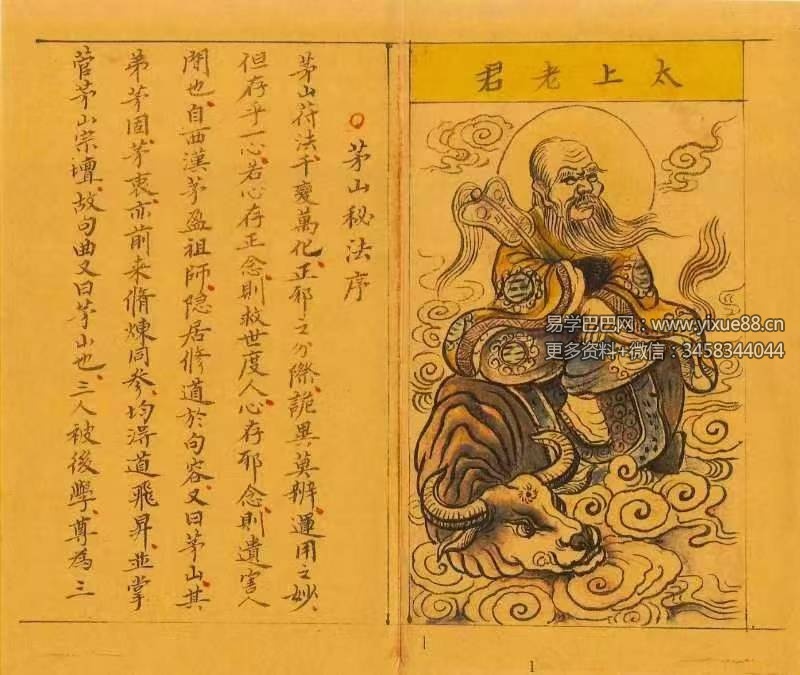 太上老君
茅山秘法序
茅山符法千變萬化、正邪之分際、詭異莫辨、運用之妙、
但存乎一心、若心存正念、則救世度人、心存邪念、則遺害人
間也、自西漢茅盈祖師、隐居修道於句容、又曰茅山、其
弟茅固、茅衷、亦前来脩煉同參、均淂道飛昇、並掌
菅茅山宗壇、故句曲又曰茅山也、三人被後學、尊為三
易学巴巴网:www.yixue88.cn
更多资料+微信:3458344044
1
1